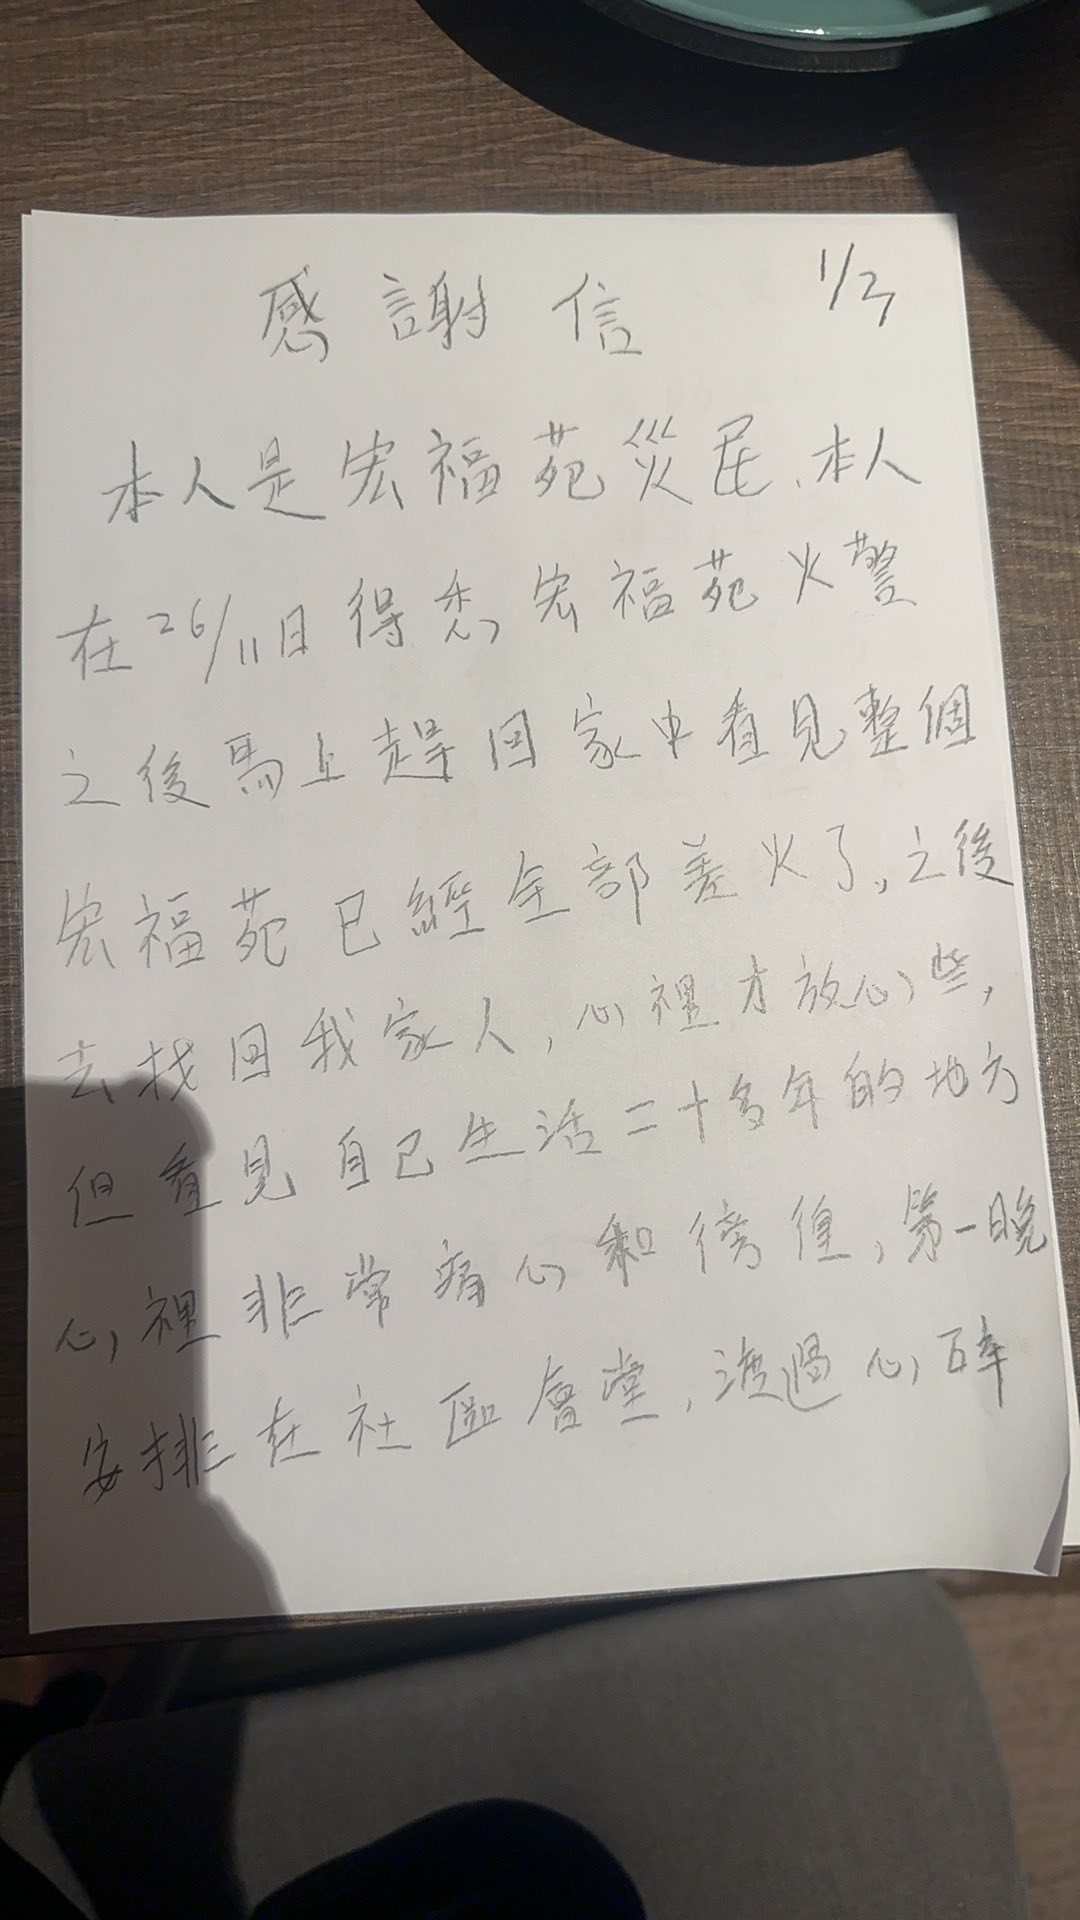 感謝信
1/3
本人是宏福苑災民、本人
在26/11日得悉宏福苑火警
之後馬上趕回家中看見整個
宏福苑已經全部差火了,之後
去找回我家人,心裡才放心些,
但看見自己生活二十多年的地方
心裡非常痛心和徬徨,第一晚
安排在社區會堂,渡過心碎